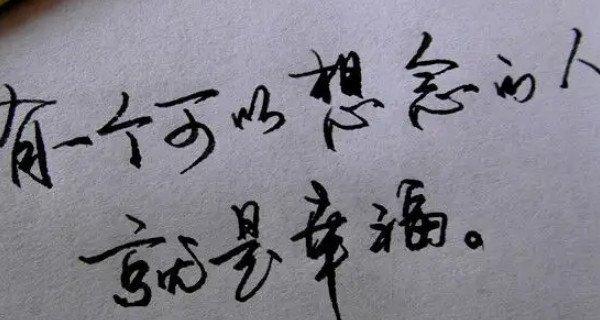 有一个可以想念的人
就是幸福。